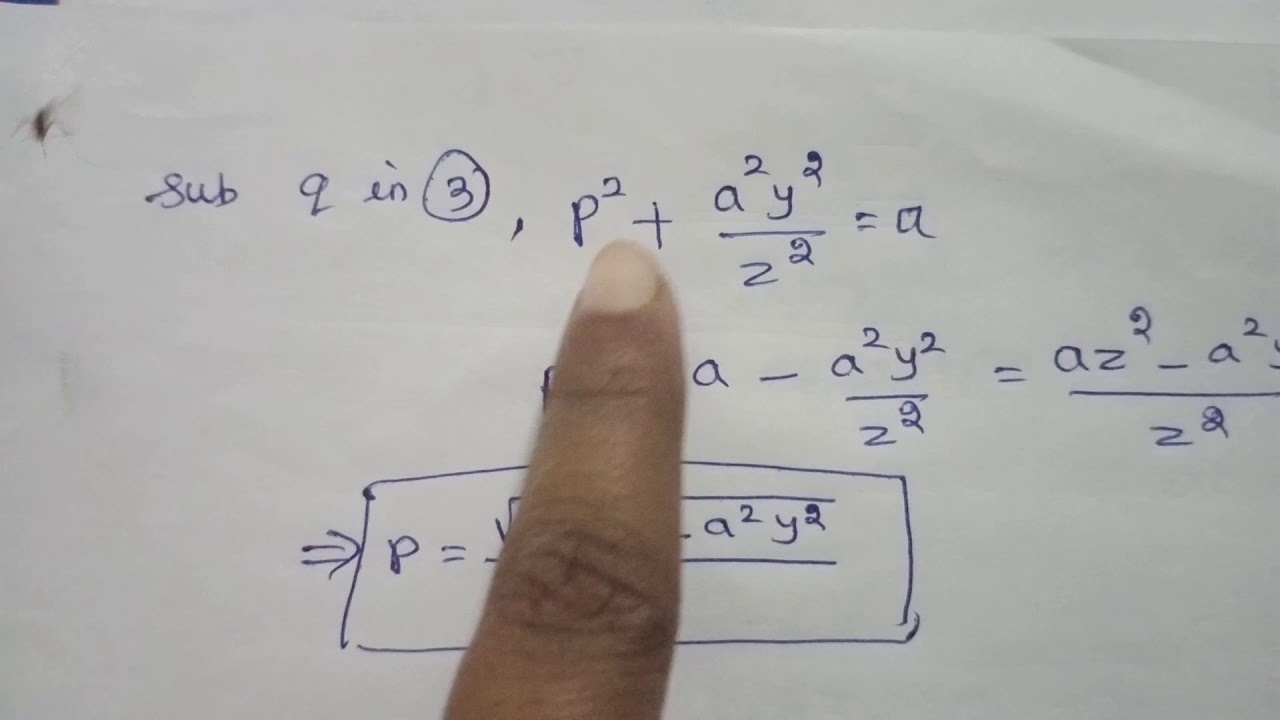 Sub q in ③, p² + a²y²/z² = a
a − a²y²/z² = az² − a²y/z²
⇒ p = √ - a²y²